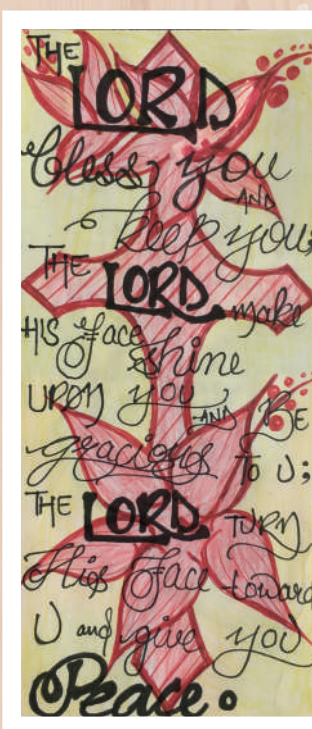 THE
LORD
bless you
-AND
keep you;
THE
LORD make
HIS face
shine
UPON you
-AND BE
gracious to U;
THE
LORD TURN
His Face toward
U and give you
Peace.